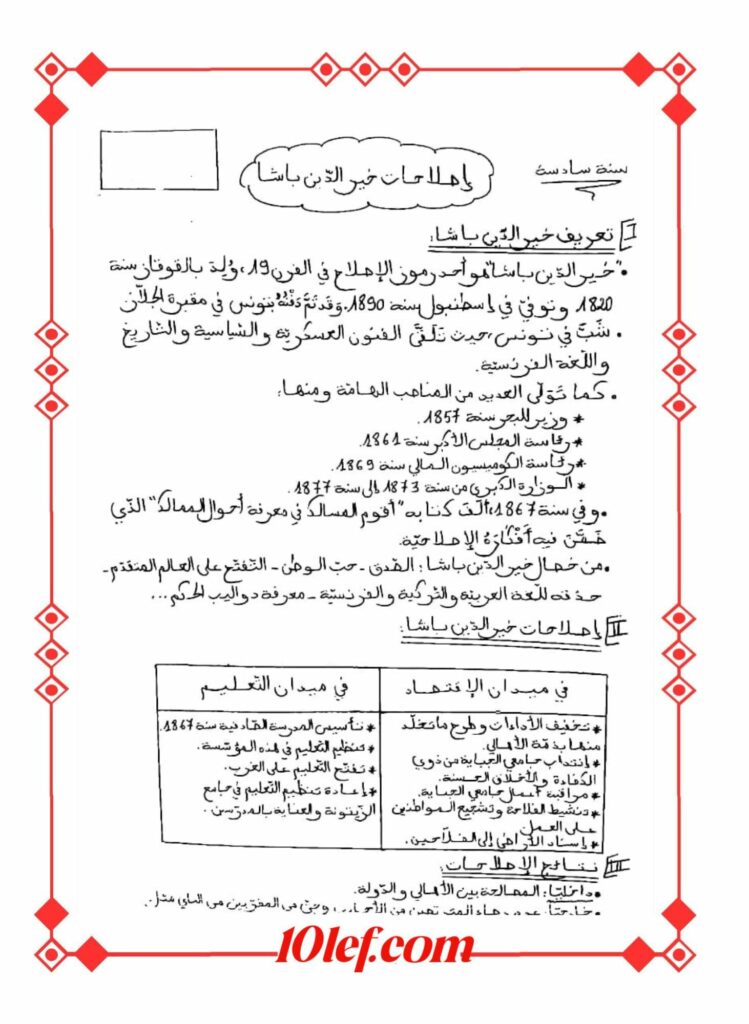 سنة سادسة
إصلاحات خير الدّين باشا
I تعريف خير الدّين باشا:
• "خير الدّين باشا" هو أحد رموز الإصلاح في القرن 19، وُلِدَ بالقوقاز سنة
1820 وتوفيّ في إسطنبول سنة 1890. وَقَدْ تَمَّ دَفْنُهُ بتونس في مقبرة الجلاّز
• شَبَّ في تونس، حيث تَلَقَّى الفنون العسكريّة والسّياسية والتّاريخ
واللّغة الفرنسيّة.
• كما تَوَلَّى العديد من المناصب الهامّة ومنها:
* وزير للبحر سنة 1857.
* رئاسة المجلس الأكبر سنة 1861.
* رئاسة الكوميسيون المالي سنة 1869.
* الوزارة الكبرى من سنة 1873 إلى سنة 1877.
• وفي سنة 1867، ألّفَ كتابه "أقوم المسالك في معرفة أحوال الممالك" الذّي
ضَمَّنَ فيه أَفْكَارَهُ الإصلاحيّة.
• من خصال خير الدّين باشا: الصّدق - حبّ الوطن - التّفتّح على العالم المتقدّم -
حذقه للّغة العربيّة والتّركية والفرنسيّة - معرفة دواليب الحكم...
II إصلاحات خير الدّين باشا:
في ميدان الإقتصاد
في ميدان التّعليم
* تخفيف الأداءات وطرح ما تخلّد
منها بذمّة الأهالي.
* إنتداب جامعي الجباية من ذوي
الكفاءة والأخلاق الحسنة.
* مراقبة أعمال جامعي الجباية.
* تنشيط الفلاحة وتشجيع المواطنين
على العمل
* إسناد الأراضي إلى الفلاّحين.
* تأسيس المدرسة الصّادقية سنة 1867.
* تنظيم التّعليم في هذه المؤسّسة.
* تفتّح التّعليم على الغرب.
* إعادة تنظيم التّعليم في جامع
الزّيتونة والعناية بالمدرّسين.
III نتائج الإصلاحات:
• داخليّا: المصالحة بين الأهالي والدّولة.
• خارجيّا:
10lef.com